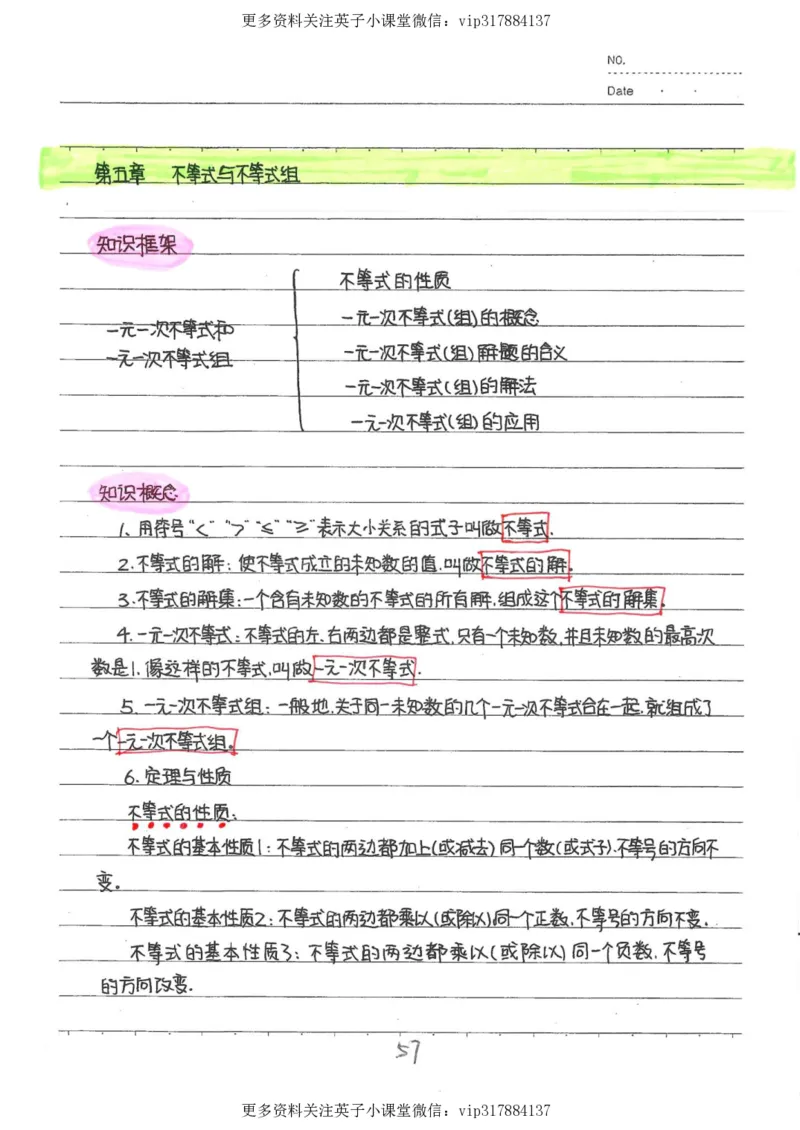 更多资料关注英子小课堂微信：vip317884137
NO.
Date
第五章 不等式与不等式组
知识框架
不等式的性质
一元一次不等式(组)的概念
一元一次不等式和
一元一次不等式组
一元一次不等式(组)解题的含义
一元一次不等式(组)的解法
一元一次不等式(组)的应用
知识概念
1、用符号“<”“>”“≤”“≥”表示大小关系的式子叫做不等式.
2.不等式的解：使不等式成立的未知数的值.叫做不等式的解。
3.不等式的解集：一个含有未知数的不等式的所有解.组成这个不等式的解集。
4.一元一次不等式：不等式的左、右两边都是整式,只有一个未知数,并且未知数的最高次
数是1.像这样的不等式,叫做一元一次不等式.
5.一元一次不等式组：一般地,关于同一未知数的几个一元一次不等式合在一起,就组成了
一个一元一次不等式组。
6.定理与性质
不等式的性质：
不等式的基本性质1：不等式的两边都加上(或减去)同一个数(或式子).不等号的方向不
变。
不等式的基本性质2：不等式的两边都乘以(或除以)同一个正数,不等号的方向不变.
不等式的基本性质3：不等式的两边都乘以(或除以)同一个负数,不等号
的方向改变.
57
更多资料关注英子小课堂微信：vip317884137